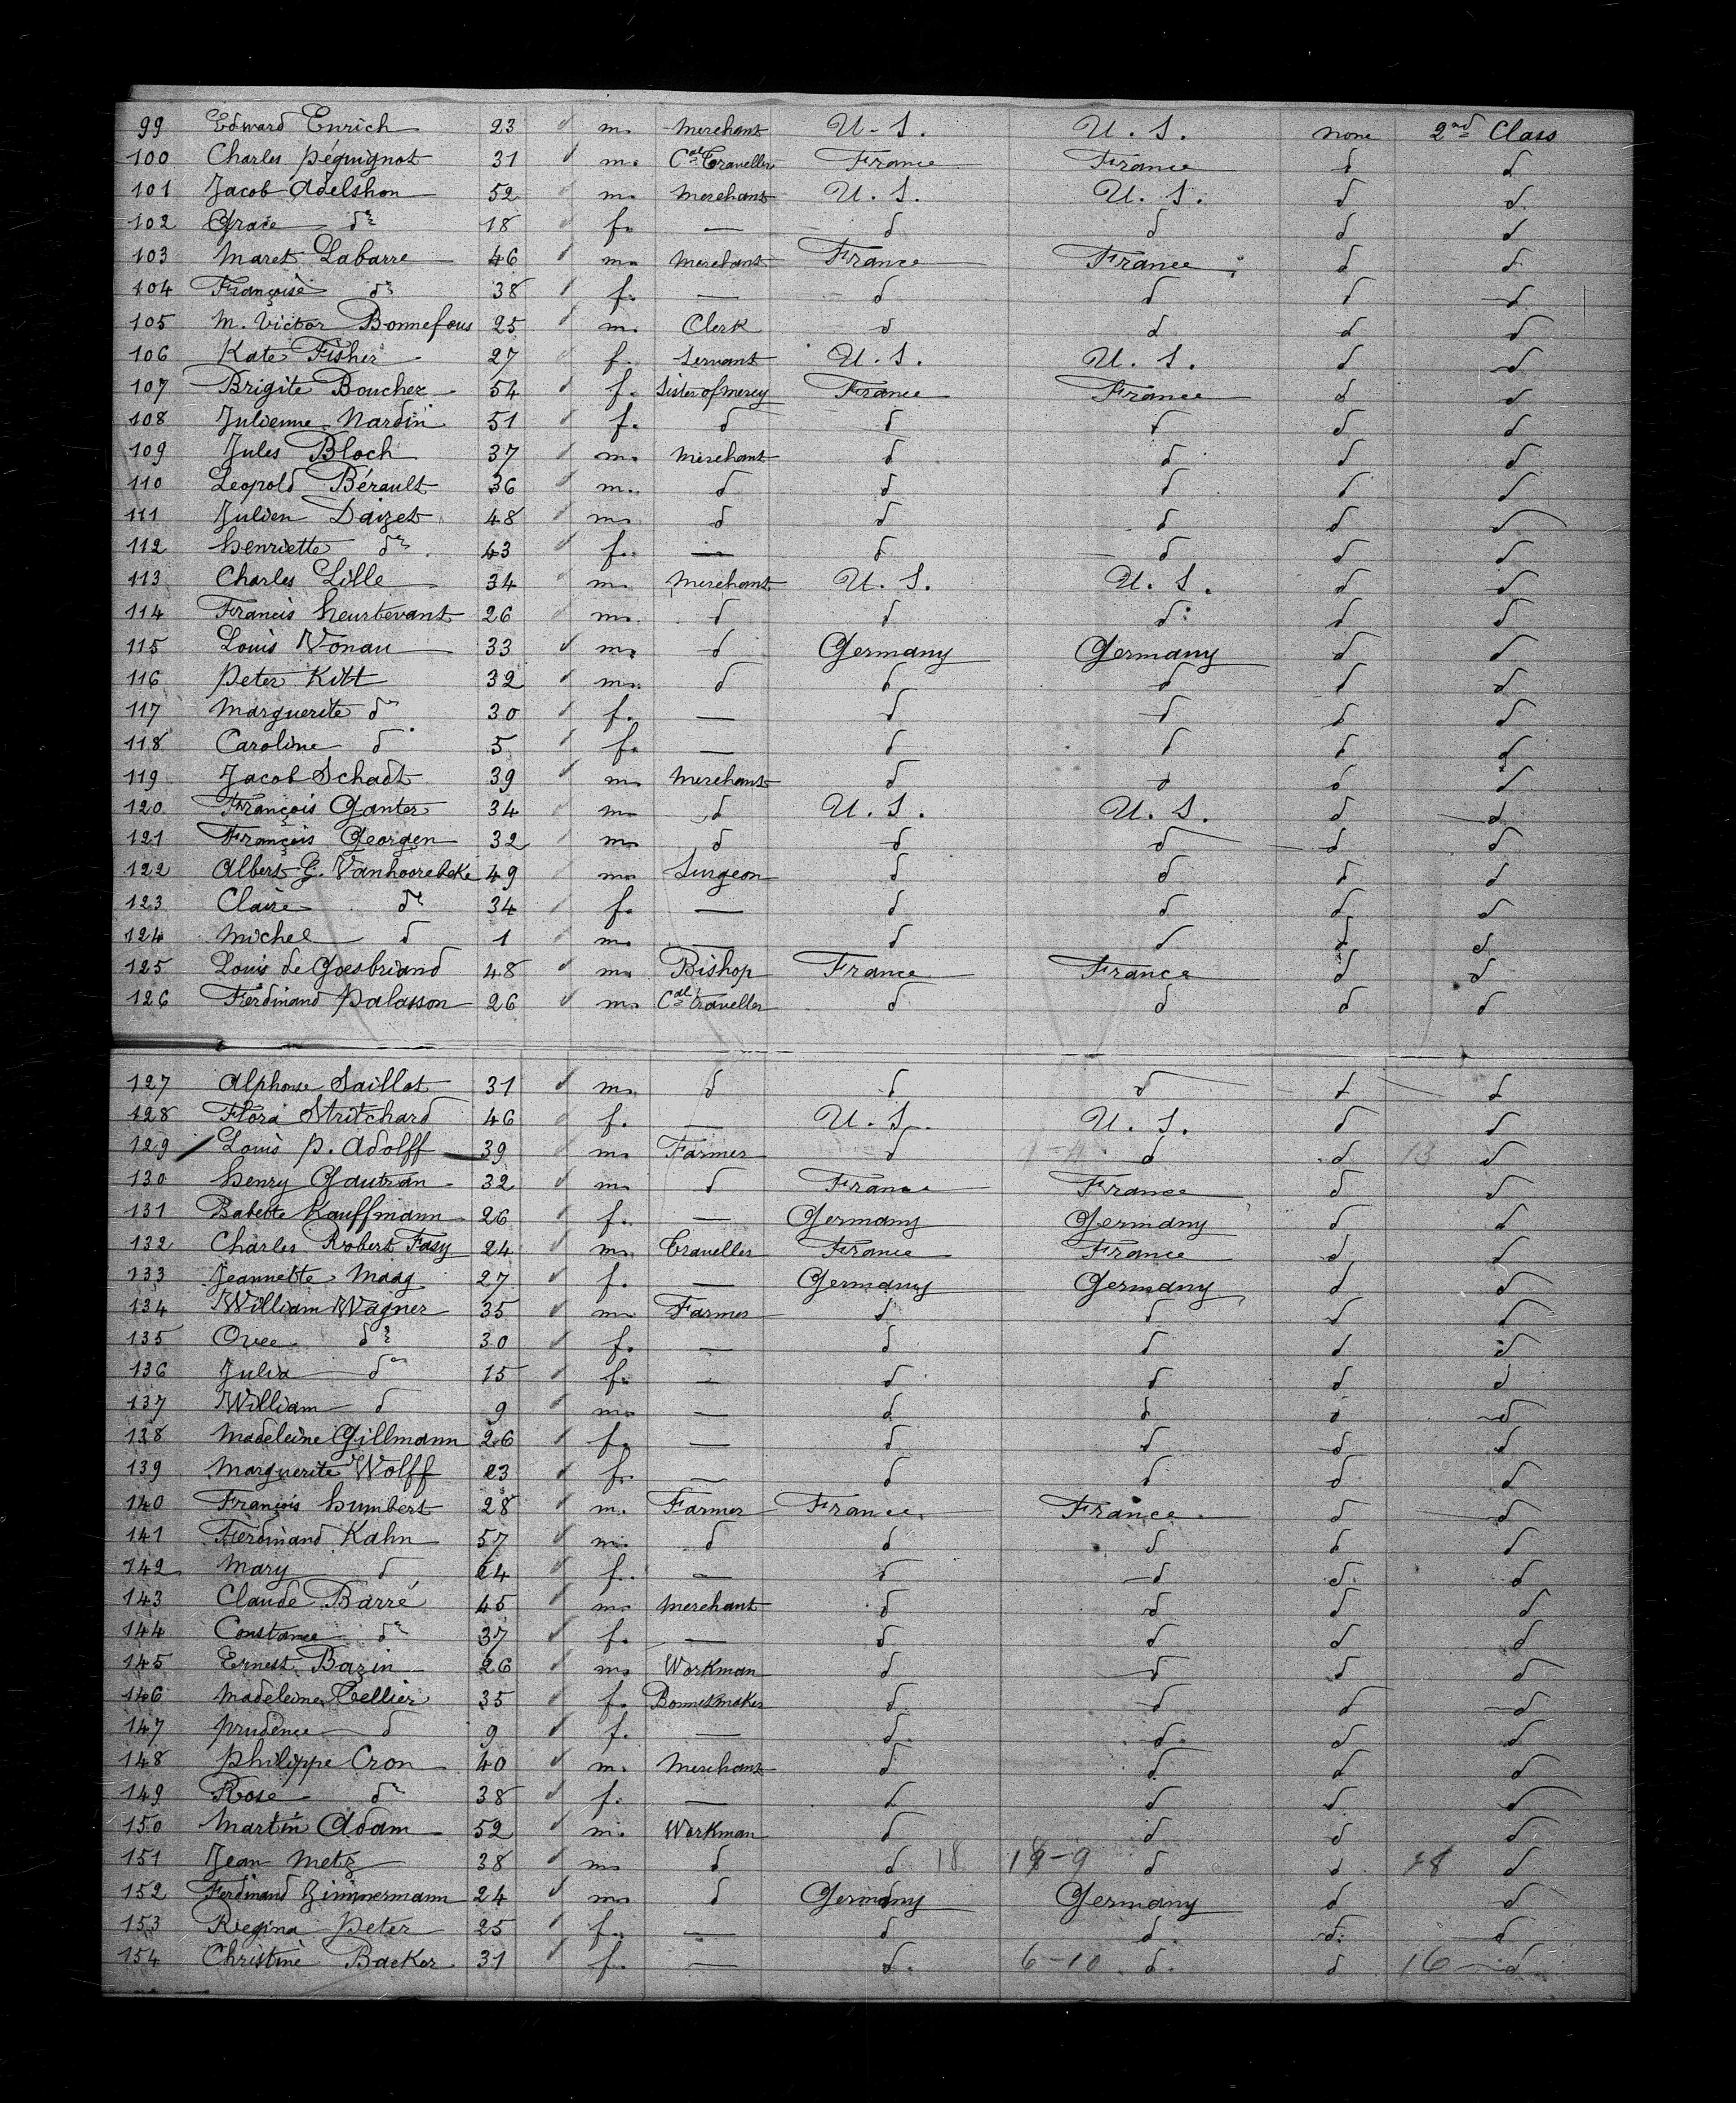 99 Edward Enrich 23 d m. Merchant U.S. U.S. none 2nd Class
100 Charles Péquignot 31 d m. Cal Traveller France France d d
101 Jacob Adelshon 52 d m. Merchant U.S. U.S. d d
102 Grace do 18 d f. — d d d d
103 Maret Labarre 46 d m. Merchant France France d d
104 Françoise do 38 d f. — d d d d
105 M. Victor Bonnefous 25 d m. Clerk d d d d
106 Kate Fisher 27 d f. Servant U.S. U.S. d d
107 Brigite Boucher 54 d f. Sister of mercy France France d d
108 Julienne Nardin 51 d f. d d d d d
109 Jules Bloch 37 d m. Merchant d d d d
110 Leopold Bérault 36 d m. d d d d d
111 Julien Daizet 48 d m. d d d d d
112 Henriette do 43 d f. — d d d d
113 Charles Lille 34 d m. Merchant U.S. U.S. d d
114 Francis Heurtevant 26 d m. d d d d d
115 Louis Vonau 33 d m. d Germany Germany d d
116 Peter Kitt 32 d m. d d d d d
117 Marguerite do 30 d f. — d d d d
118 Caroline d 5 d f. — d d d d
119 Jacob Schadt 39 d m. Merchant d d d d
120 François Ganter 34 d m. d U.S. U.S. d d
121 François Georgen 32 d m. d d d d d
122 Albert G. Vanhoorebeke 49 d m. Surgeon d d d d
123 Claire do 34 d f. — d d d d
124 Michel d 1 d m. — d d d d
125 Louis de Goesbriand 48 d m. Bishop France France d d
126 Ferdinand Palasson 26 d m. Cal Traveller d d d d
127 Alphonse Saillot 31 d m. d d d d d
128 Flora Stritchard 46 d f. — U.S. U.S. d d
129 Louis P. Adolff 39 d m. Farmer d d d 13 d
130 Henry Gautran 32 d m. d France France d d
131 Babette Kauffmann 26 d f. — Germany Germany d d
132 Charles Robert Fasy 24 d m. Traveller France France d d
133 Jeannette Maag 27 d f. — Germany Germany d d
134 William Wagner 35 d m. Farmer d d d d
135 do 30 d f. — d d d d
136 Julia do 15 d f. — d d d d
137 William d 9 d m. — d d d d
138 Madeleine Gillmann 26 d f. — d d d d
139 Marguerite Wolff 23 d f. — d d d d
140 François Humbert 28 d m. Farmer France France d d
141 Ferdinand Kahn 57 d m. d d d d d
142 Mary d 24 d f. — d d d d
143 Claude Barré 45 d m. Merchant d d d d
144 Constance do 37 d f. — d d d d
145 Ernest Bazin 26 d m. Workman d d d d
146 Madeleine Tellier 35 d f. Bonnetmaker d d d d
147 Prudence d 9 d f. — d d d d
148 Philippe Cron 40 d m. Merchant d d d d
149 Rose do 38 d f. — d d d d
150 Martin Adam 52 d m. Workman d d d d
151 Jean Metz 38 d m. d d 18 18-9 d d 18 d
152 Ferdinand Zimmermann 24 d m. d Germany Germany d d
153 Regina Peter 25 d f. — d d d d
154 Christine Backer 31 d f. — d 6-10 d d 16 d